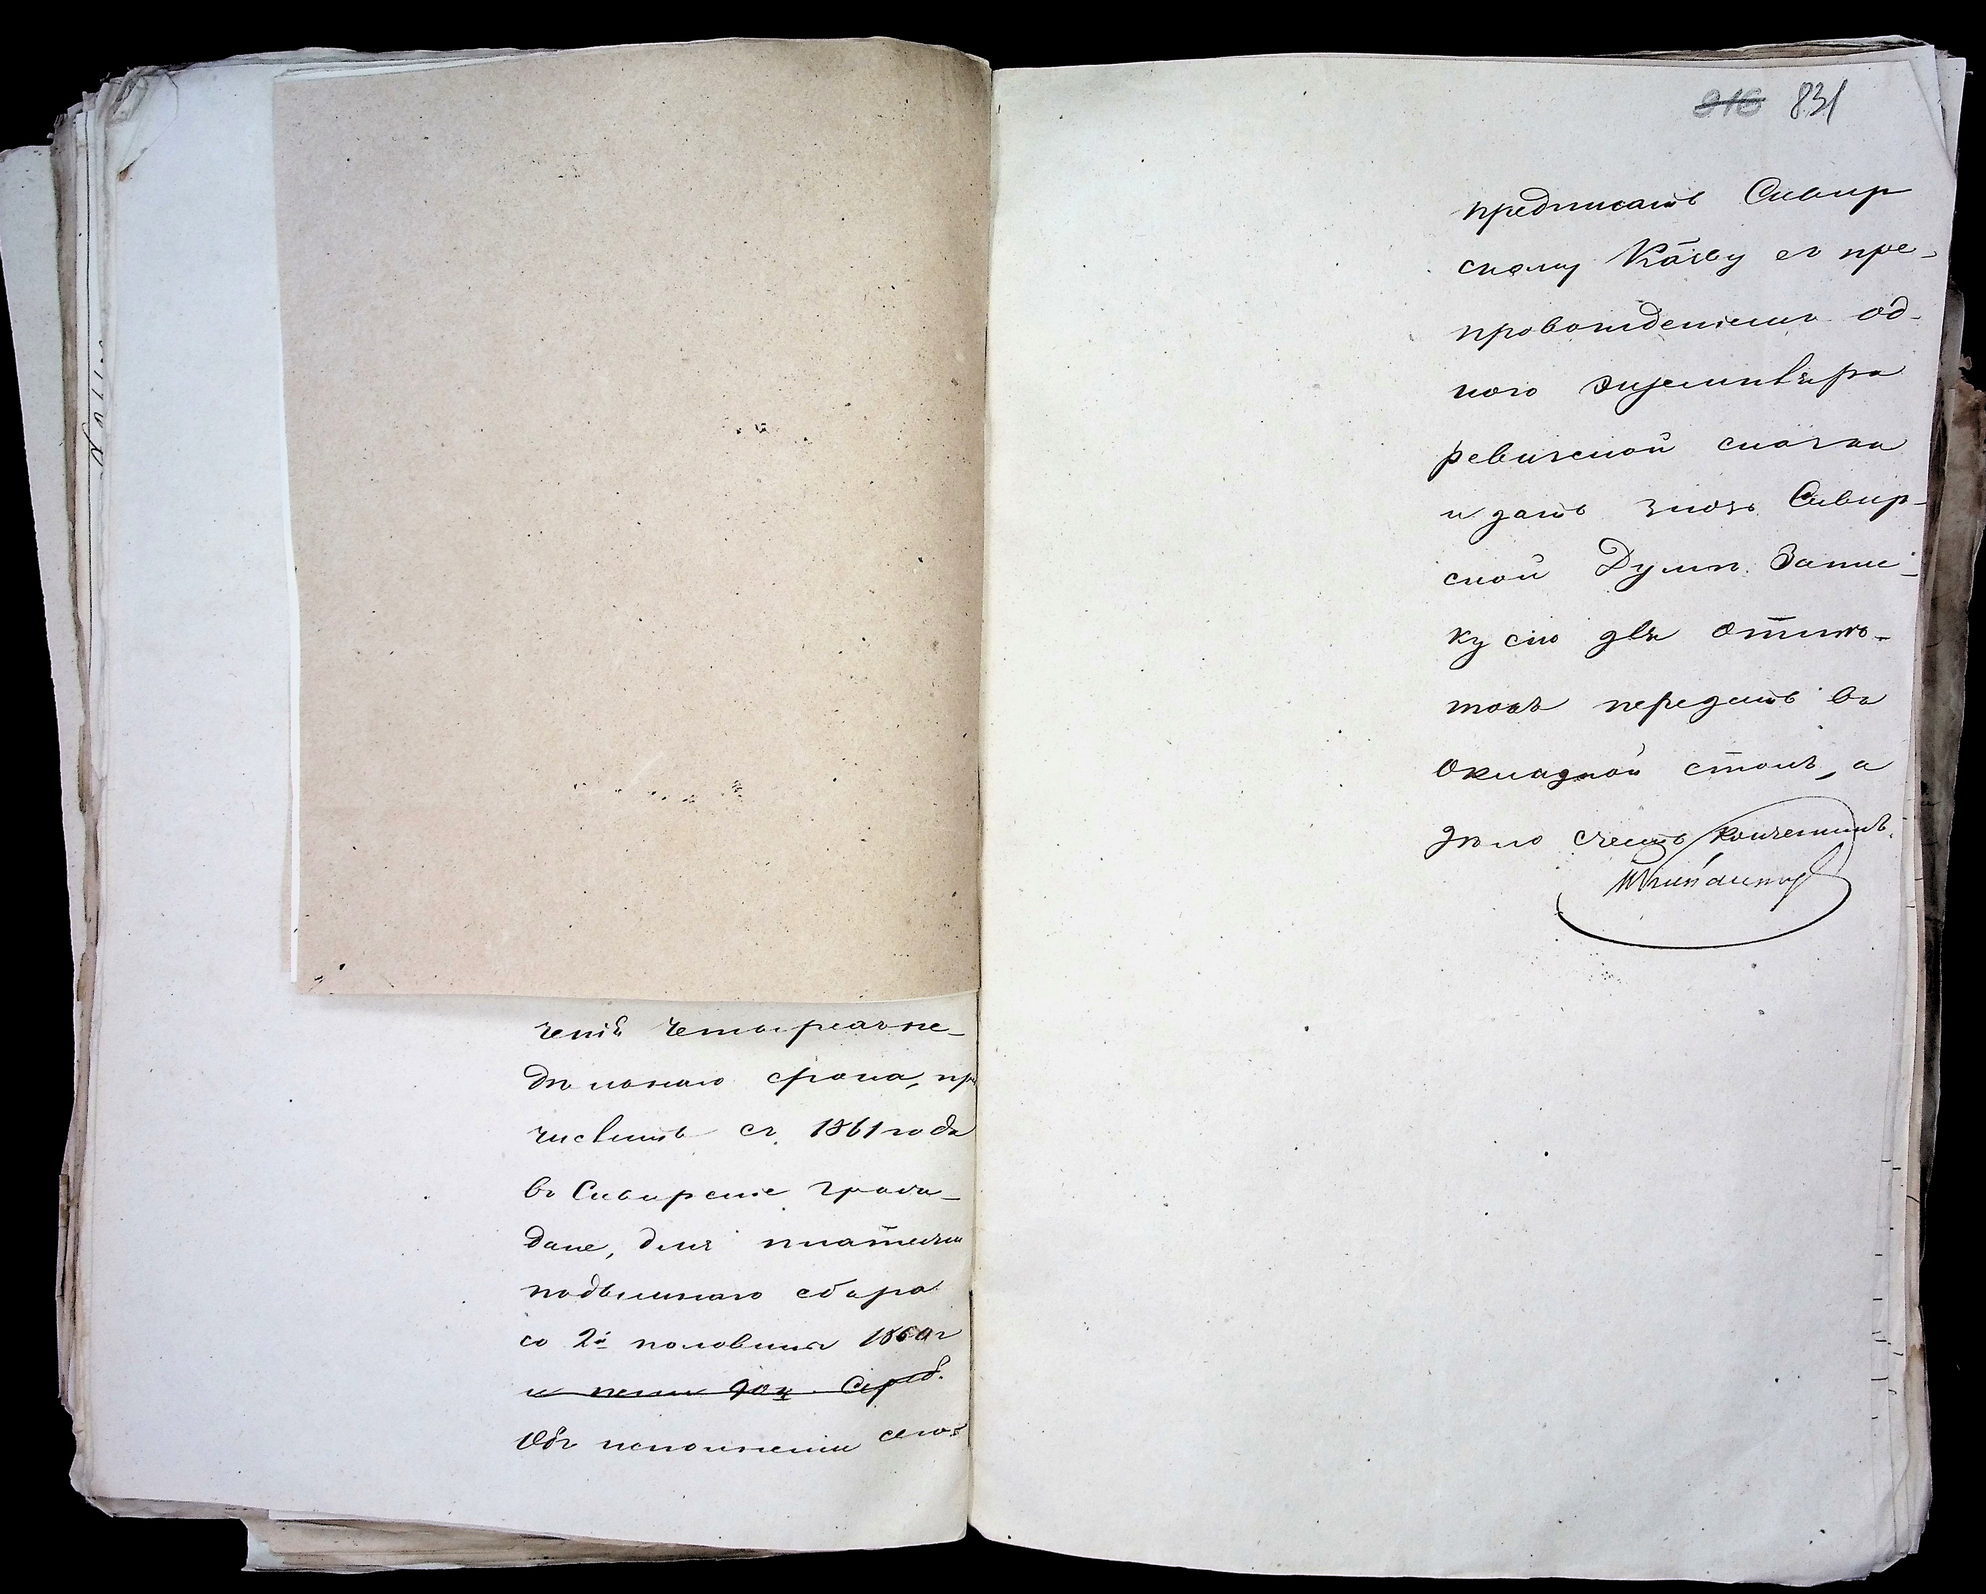 ченiя четырехне-
дѣльнаго срока, при
числить съ 1861 года
въ Сквирскiе гражда-
дане, для платежа
подымнаго сбора
со 2й половины 1860 г
Объ исполненiи сего
916 831
предписать Сквир
скому Каз-ву съ пре-
провожденiемъ од-
ного экземпляра
ревизской сказки
и дать знать Сквир-
ской Думѣ. Запис-
ку сiю для отмѣ-
токъ передать въ
Окладной столъ, а
дѣло счесть конченнымъ.